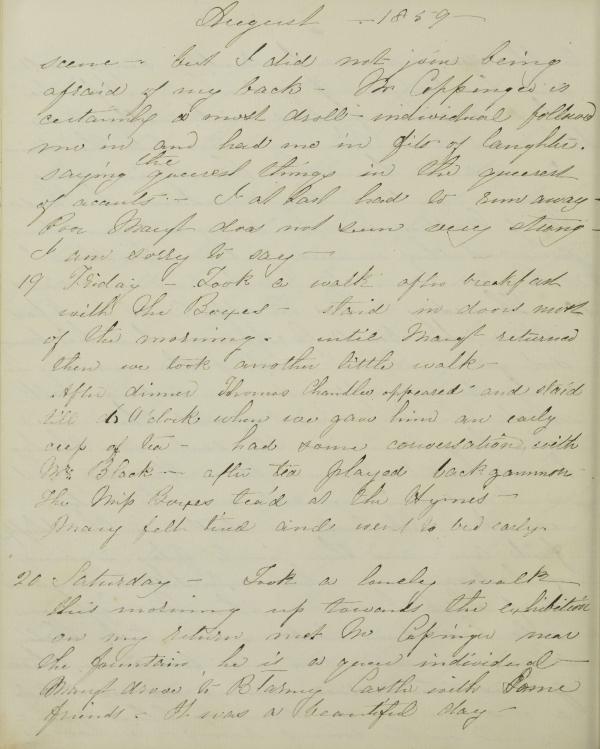 August - 1859 -
scene - but I did not join being
afraid of my back - Mr Coppinger is
certainly a most droll individual followed
me in and had me in fits of laughter.
saying the queerest things in the queerest
of accents - I at last had to run away -
Poor Margt does not seem very strong -
I am sorry to say -
19 Friday - Took a walk after breakfast
with the Boyses - staid in doors most
of the morning. until Margt returned
then we took another little walk -
After dinner Thomas Chandlee appeared and staid
till 6 O'clock when we gave him an early
cup of tea - had some conversation with
Mrs Black - after tea played backgammon
The Miss Boyses tea'd at the Hymes -
Margt felt tired and went to bed early
20 Saturday - Took a lonely walk
this morning up towards the exhibition
on my return met Mr Copinger near
the fountain he is a queer individual -
Margt drove to Blarney Castle with some
friends - It was a beautiful day -